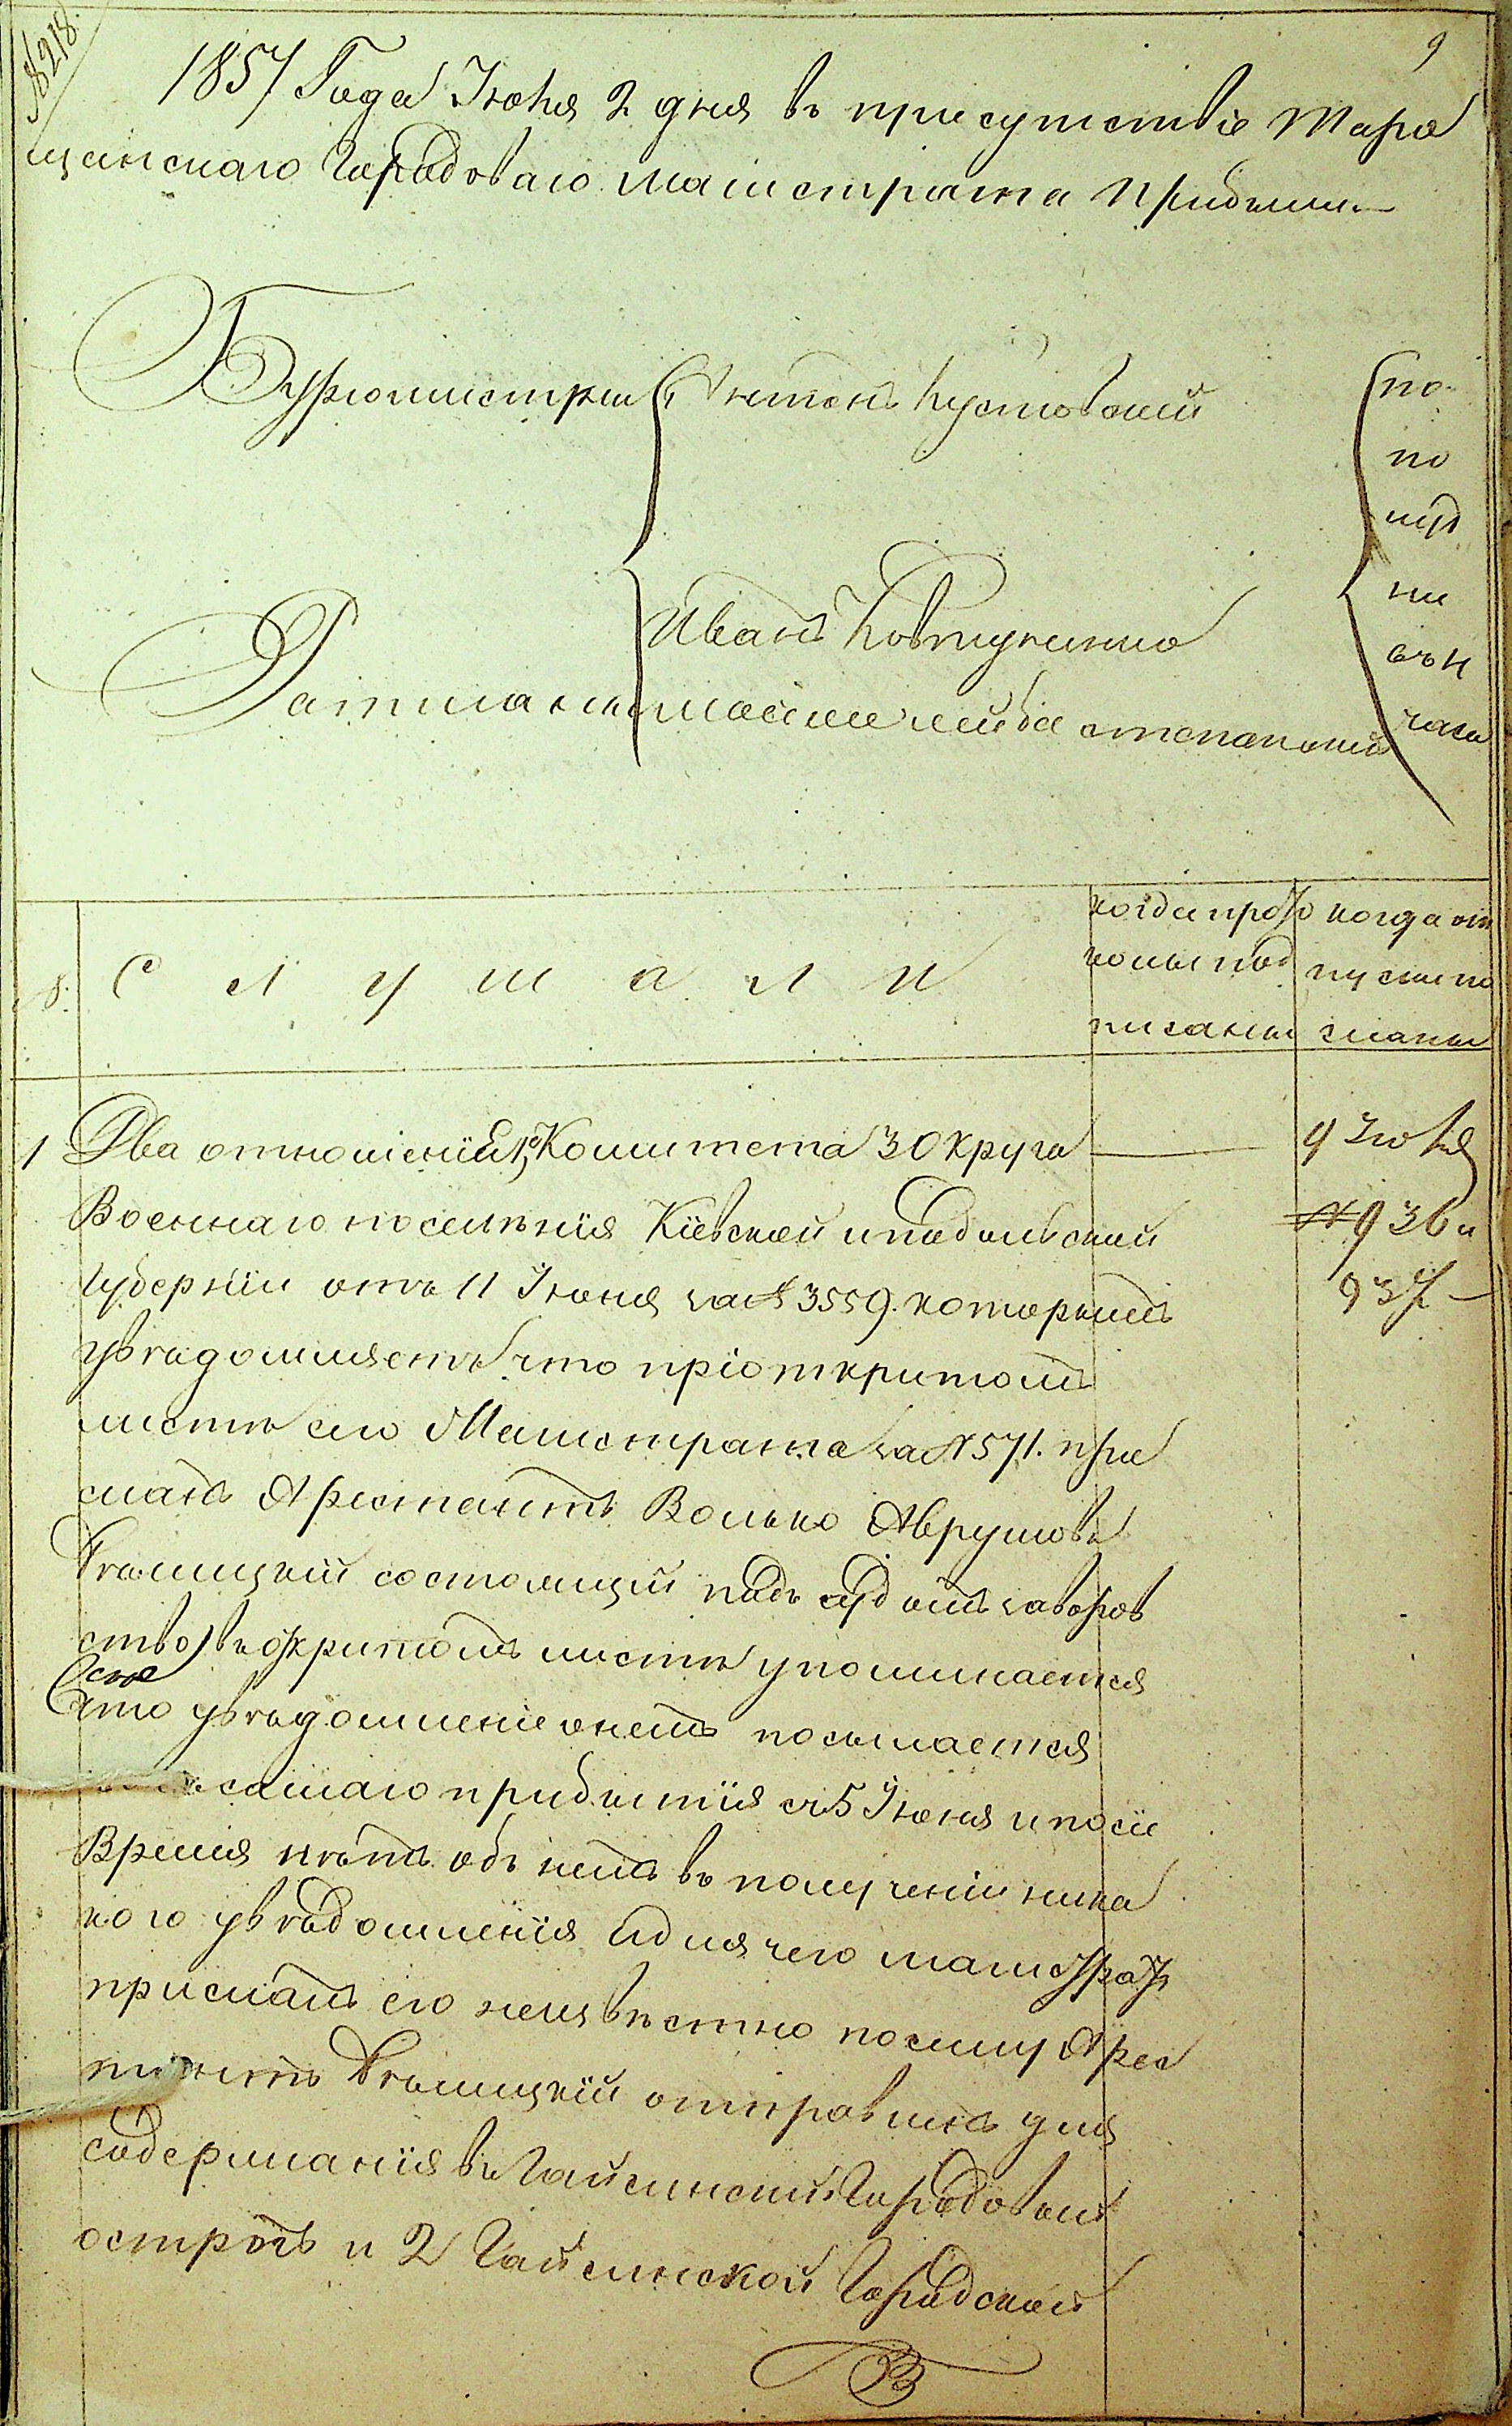 № 218.
9
1857 Года Іюня 2 дня въ присутствіе Тара
щанскаго Городоваго Магистрата Прибыли
Бургомистры Антонъ Кустовскій
по
по
луд
Иванъ Ковтуненко
ни
Ратманы
степанскій
часа
№.
С л у ш а л и
когда прото
колы под
писаны
когда от
пуски по
сланы
1 Два отношенія 1, Комитета 3 Округа
9 Іюля
Военнаго поселенія Кіевской и Подольской
№ 936 и
губерніи отъ 11 Іюня за № 3559. которымъ
937
увѣдомляетъ что при открытомъ
листѣ сего Магистрата за № 571. при
сланъ Арестантъ Волько Аврумовъ
состоящій подъ судомъ за воров
ство, въ открытомъ листѣ упоминается
что увѣдомленіе о немъ посылается
самаго прибытія съ 5 Іюня и по сіе
Время нѣтъ объ немъ въ полученіи ника
кого увѣдомленія и для чего магистратъ
прислалъ его неизвѣстно почему Арес
тантъ отправленъ для
содержанія въ Гайсинскій Городовый
острогъ и 2, Гайсинской Городской